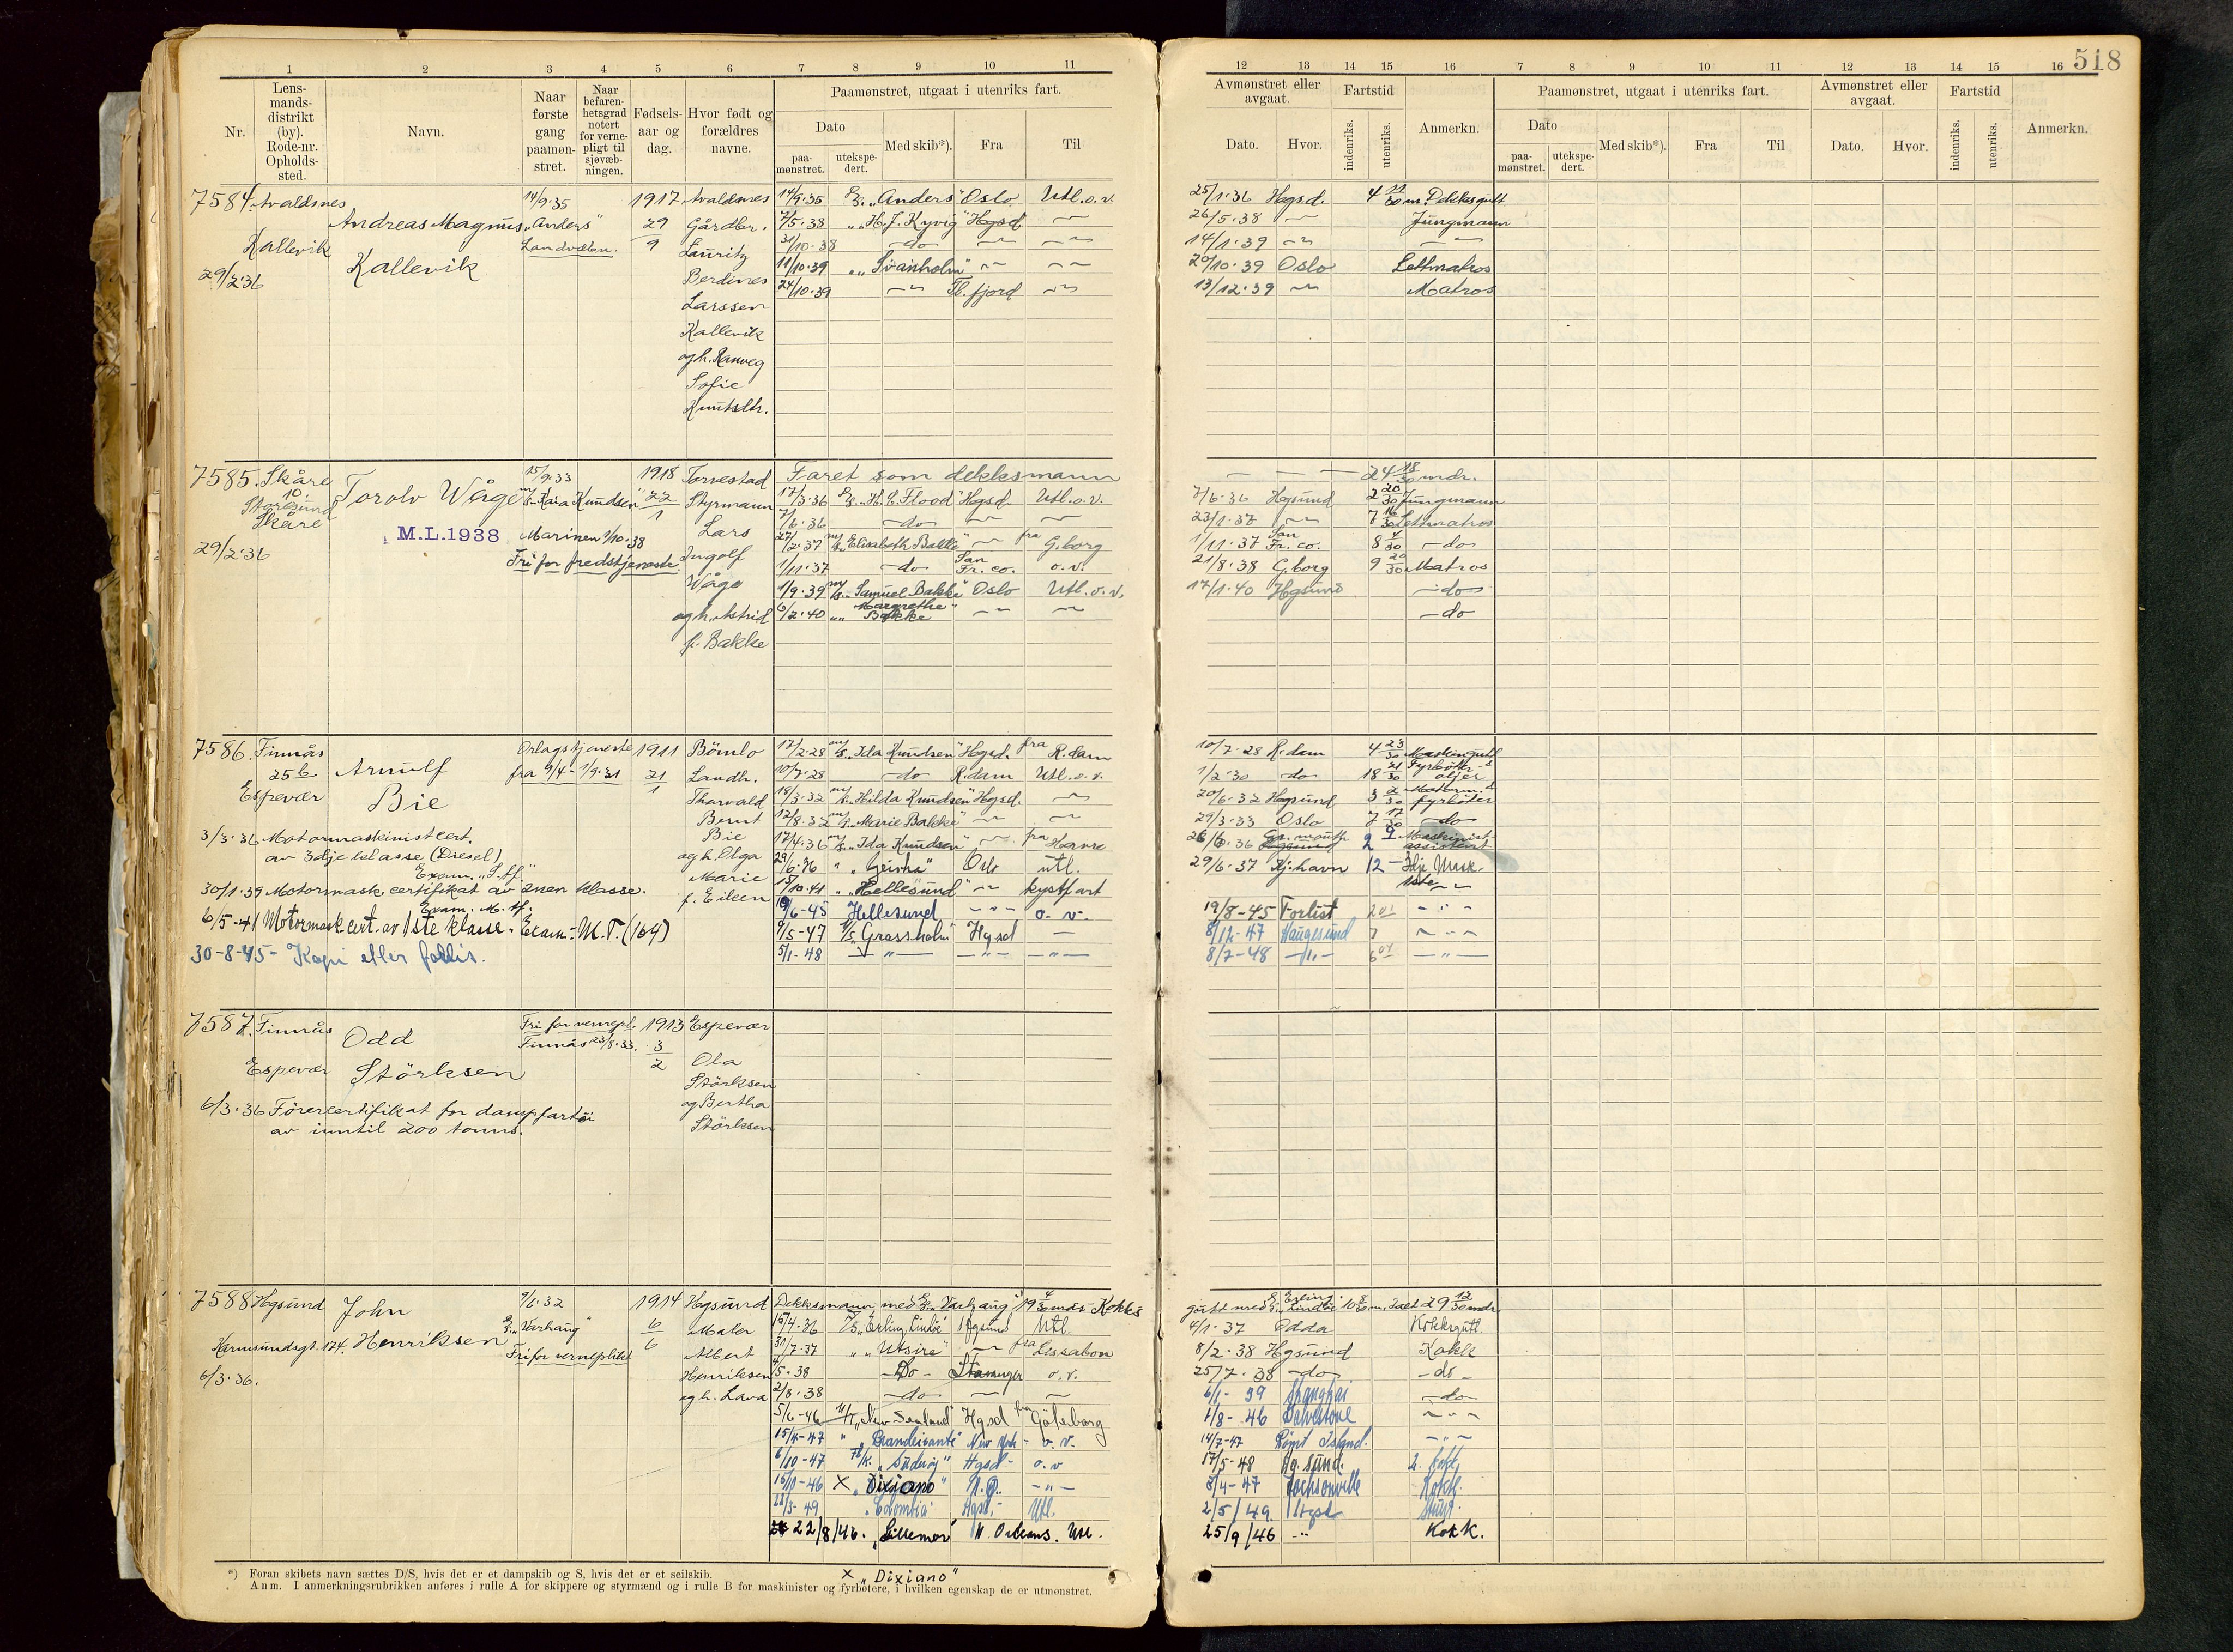 518
1 2 3 4 5 6 7 8 9 10 11
12 13 14 15 16 7 8 9 10 11 12 13 14 15 16
Nr.
Lens-
mands-
distrikt
(by).
Rode-nr.
Opholds-
sted.
Navn.
Naar
første
gang
paamøn-
stret.
Naar
befaren-
hetsgrad
notert
for verne-
pligt til
sjøvæb-
ningen.
Fødsels-
aar og
dag.
Hvor født og
forældres
navne.
Paamønstret, utgaat i utenriks fart.
Dato
paa-
mønstret.
utekspe-
dert.
Med skib*).
Fra
Til
Avmønstret eller
avgaat.
Dato.
Hvor.
Fartstid
indenriks.
utenriks.
Anmerkn.
Paamønstret, utgaat i utenriks fart.
Dato
paa-
mønstret.
utekspe-
dert.
Med skib*).
Fra
Til
Avmønstret eller
avgaat.
Dato.
Hvor.
Fartstid
indenriks.
utenriks.
Anmerkn.
7584. Avaldsnes
Kallevik
29/2·36
Andreas Magnus
Kallevik
14/9·35
"Anders"
Landvæten.
1917
29
9
Avaldsnes
Gårdbr.
Lauritz
Berdines
Larssen
Kallevik
og h. Ranveg
Sofie
Knutsdtr.
14/9·35 "Anders" Oslo Utl. o. v. 25/1·36 Hgsd. 4 11/30 m. Dekksgutt
7/5·38 " "H. J. Kyvig" Hgsd 26/5·38 Jungmann
31/10·38 -do- 14/1·39
11/10·39 " "Svanholm" 20/10·39 Oslo Lettmatros
24/10·39 Fl. fjord 13/12·39 Matros
7585. Skåre
10.
Storesund
Skåre
29/2·36
Torolv Våge
M.L.1938
15/9·33
"Kaia Knudsen"
Marinen 1/10·38
Fri for fredstjeneste.
1918
22
1
Torvestad
Styrmann
Lars
Ingolf
Våge
og h. Astrid
f. Bakke
Faret som dekksmann 24 18/30 mdr.
17/3·36 "H. C. Flood" Hgsd. Utl. o. v. 7/6·36 Hgsund 2 20/30 Jungmann
7/6·36 -do- 23/1·37 7 16/30 Lettmatros
27/2·37 "Elisabeth Bakke" fra G.borg 1/11·37 San Fr. co. 8 4/30 -do-
1/11·37 -do- San Fr. co. o. v. 21/8·38 G.borg 9 20/30 Matros
1/9·39 "Samuel Bakke" Oslo Utl. o. v. 17/1·40 Hgsund -do-
6/2·40 " "Margrethe Bakke" -do-
7586. Finnås
256
Espevær
Arnulf
Bie
Orlagstjeneste
fra 9/4 - 1/9·31
1911
21
1
Bömlo
Landh.
Thorvald
Bernt
Bie
og h. Olga
Marie
f. Eilsen
3/3·36 Motormaskinistcert.
av 3dje klasse (Diesel)
30/1·39 Motormask. certifikat av 2nen klasse.
Exam. M. tf.
6/5-41 Motormask.cert. av 1ste klasse. Exam: M.T. (164)
30-8-45 - Kopi etter forlis.
17/2·28 "Ida Knudsen" Hgsd. fra R.dam 10/7·28 R.dam 4 23/30 Maskingutt
10/7·28 -do- R.dam Utl. o. v. 1/2·30 -do- 18 21/30 Fyrböter & oljer
18/3·32 "Hilda Knudsen" Hgsd. 20/6·32 Hgsund 3 2/30 Motorm. & fyrböter
12/8·32 "Marie Bakke" 29/3·33 Oslo 7 17/30 -do-
17/4·36 "Ida Knudsen" fra Havre 26/6·36 2 9 Maskinist assistent
29/6·36 " "Geisha" Oslo utl. 29/6·37 Kj.havn 12 - 3dje Mask.
15/10·41 " "Hellesund" kystfart 1ste
9/6-45 Hellesund o. v. 19/8-45 Forlist
9/5-47 "Grassholm" Hgsd 8/12-47 Haugesund 7
5/1-48 8/7-48 6
7587. Finnås
Espevær
Odd
Störksen
Fri for vernepl.
Finnås 23/8·33.
1913
3
2
Espevær
Ola
Störksen
og Bertha
Störksen
6/3·36 Förercertifikat for dampfartöi
av inntil 200 tonns.
7588 Hgsund
Karmsundsgt. 174.
6/3·36.
John
Henriksen
7/6·32
"Varhaug"
Fri for verneplikt
1914
6
6
Hgsund
Maler
Albert
Henriksen
og h. Lava
Dekksmann med "Varhaug" 19 4/30 mdr. Kokks
gutt med "Erling Lindöe" 10 8/30 m. Ialt 29 12/30 mdr.
15/4·36 "Erling Lindöe" Hgsund Utl. 4/1·37 Odda Kokksgutt.
31/7·37 " "Utsire" fra Lissabon 8/2·38 Hgsund Kokk
4/5-38 -Do- Stavanger o. v. 25/7·38 -do- -do-
2/8·38 -do- 6/1-39 Shanghai -do-
5/6-46 "New Sealand" Hgsd fra Göteborg 1/8-46
15/4-47 " "Brandeivante" New York - o. v. 14/7-47
6/10-47 "Suderöy" Hgsd - o. v 17/5-48 Hg.sund. 2. kokk
15/11-46 X "Dixiano" N.O. 8/4-47 Jacksonville Kokk.
28/3-49 "Colombia" Hgsd - Utl. 2/5/49 Hgsd Stuert.
22/8/46. "Lillemor" N. Orleans. Utl. 25/9/46 Kokk.
*) Foran skibets navn sættes D/S, hvis det er et dampskib og S, hvis det er et seilskib.
X "Dixiano"
Anm. I anmerkningsrubrikken anføres i rulle A for skippere og styrmænd og i rulle B for maskinister og fyrbøtere, i hvilken egenskap de er utmønstret.